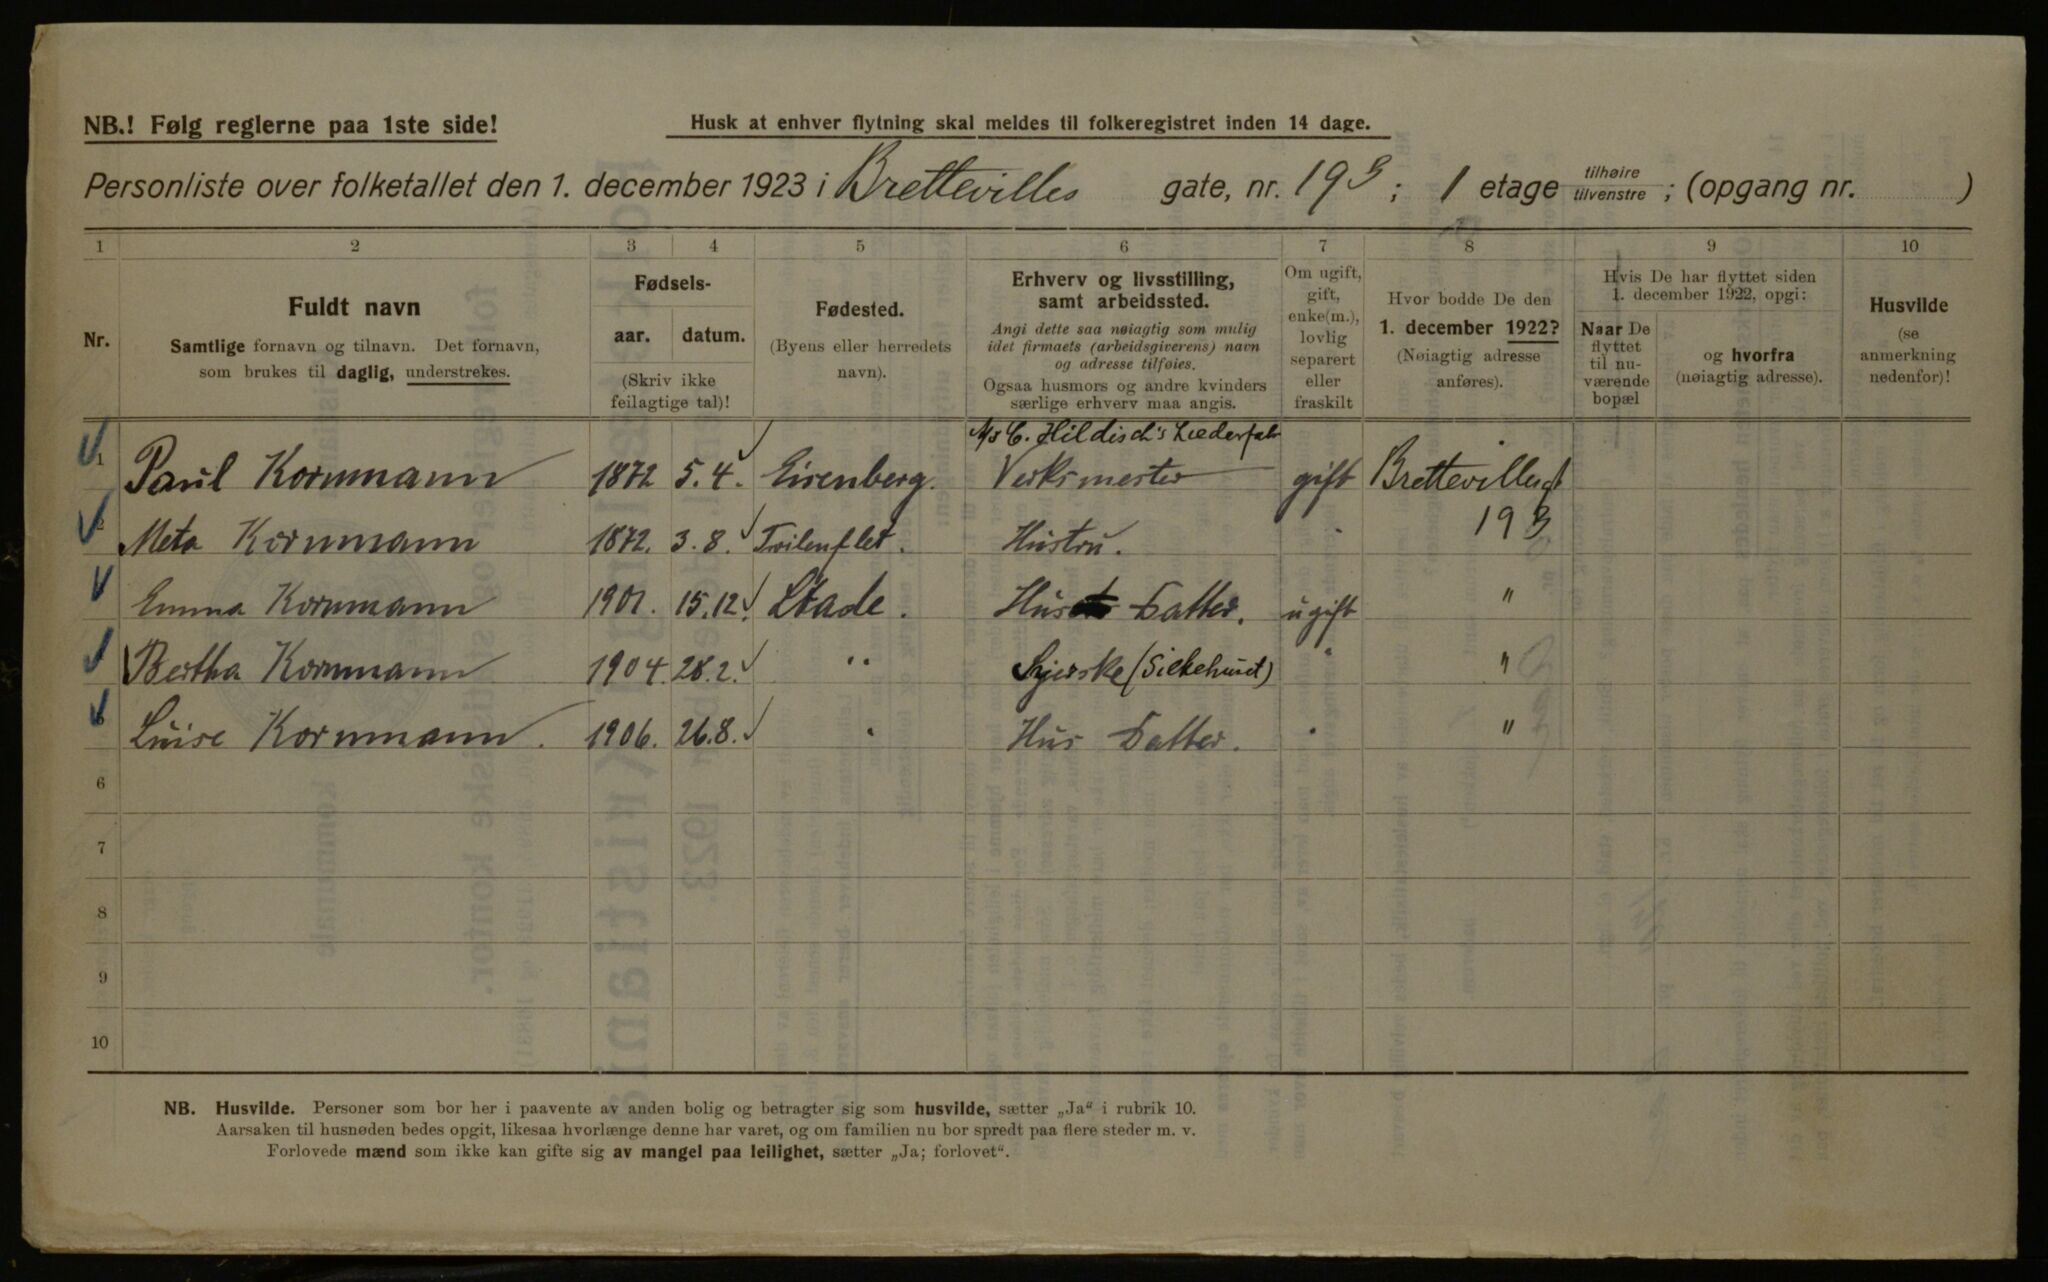 NB.! Følg reglerne paa 1ste side!
Husk at enhver flytning skal meldes til folkeregistret inden 14 dage.
Personliste over folketallet den 1. december 1923 i Brettevilles gate, nr. 193; 1 etage tilhøire tilvenstre; (opgang nr. )
1 2 3 4 5 6 7 8 9 10
Nr.
Fuldt navn
Samtlige fornavn og tilnavn. Det fornavn,
som brukes til daglig, understrekes.
Fødsels-
aar. datum.
(Skriv ikke
feilagtige tal)!
Fødested.
(Byens eller herredets
navn).
Erhverv og livsstilling,
samt arbeidssted.
Angi dette saa nøiagtig som mulig
idet firmaets (arbeidsgiverens) navn
og adresse tilføies.
Ogsaa husmors og andre kvinders
særlige erhverv maa angis.
Om ugift,
gift,
enke(m.),
lovlig
separert
eller
fraskilt
Hvor bodde De den
1. december 1922?
(Nøiagtig adresse
anføres).
Hvis De har flyttet siden
1. december 1922, opgi:
Naar De
flyttet
til nu-
værende
bopæl
og hvorfra
(nøiagtig adresse).
Husvilde
(se
anmerkning
nedenfor)!
A/s C. Hildisch's Læderfabr
1 Paul Kornmann 1872 5.4. Eisenberg. Verksmester gift Brettevillesgt
193
2 Meta Kornmann 1872. 3.8. Hustru. "
Emma Kornmann 1901. 15.12. Stade. Hus Datter. ugift "
Bertha Kornmann 1904. 28.2. " Syerske (Silkehuset) " "
5 Luise Kornmann. 1906. 26.8. " Hus Datter. " "
6
7
8
9
10
NB. Husvilde. Personer som bor her i paavente av anden bolig og betragter sig som husvilde, sætter „Ja“ i rubrik 10.
Aarsaken til husnøden bedes opgit, likesaa hvorlænge denne har varet, og om familien nu bor spredt paa flere steder m. v.
Forlovede mænd som ikke kan gifte sig av mangel paa leilighet, sætter „Ja; forlovet“.